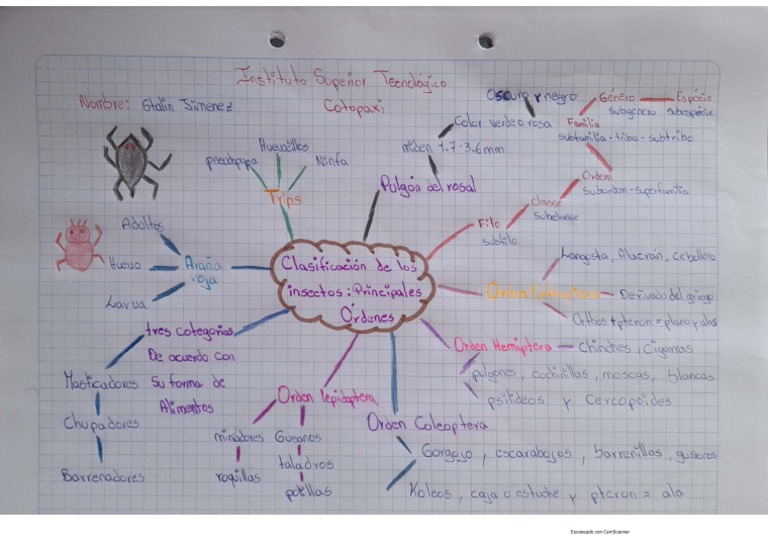 Instituto Superior Tecnológico
Cotopaxi
Nombre: Stalin Jimenez
Clasificación de los
insectos: Principales
Órdenes
Trips
pseudopupa
Ninfa
Pulgón del rosal
miden 1.7-3.6mm
Color verde o rosa
Oscuro y negro
Filo
subfilo
Classe
subclasse
Ordem
subordem-superfamilia
Familia
subfamilia-tribo-subtribo
Género
subgénero
Espécie
subespécie
Langosta, Alacrán,
Orden
Derivado del griego
Orthos + pteron = plano y alas
Orden Hemiptera
Chinches, Cigarras
pulgones, cochinillas, moscas, blancas
psilideos y Cercopoides
Orden Coleoptera
Gorgojo, escarabajos, barrenillos, gusanos
Koleos, caja o estuche y pteron = ala
Orden lepidoptera
minadores
roquillas
Gusanos
taladros
polillas
tres categorias
De acuerdo con
Su forma de
Alimentos
Masticadores
Chupadores
Barrenadores
Araña
roja
Adultos
Huevo
Larva
Escaneado con CamScanner